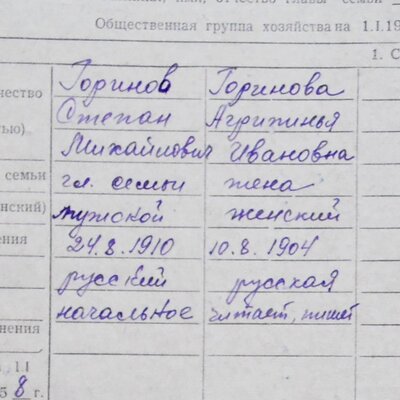 отчество главы семьи
Общественная группа хозяйства на 1.I.19
1. С
чество
Горинов Горинова
Степан Агрипинья
тью)
Михайлович Ивановна
семьи
гл. семьи жена
нский)
мужской женский
ения
24.8.1910 10.8.1904
русский русская
начальное читает, пишет
нения
58 г.